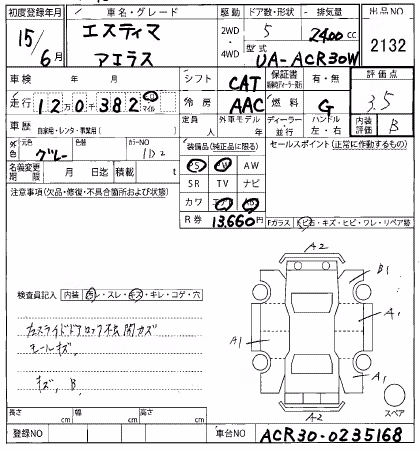 初度登録年月 車名・グレード 駆動 ドア数・形状 排気量 出品NO
15/6月 エスティマ アエラス 2WD 4WD 5 2400cc 2132
型式 UA-ACR30W
車検 年 月 シフト CAT 保証書 有・無 評価点
走行 12万0千382 km マイル 冷房 AAC 燃料 G 3.5
車歴 自家用・レンタ・事業用( ) 定員 人 外車モデル 年 ディーラー 並行 ハンドル 左・右 内装評価 B
外色 元色 グレー 色替 カラーNO 1D2 装備品(純正品に限る) セールスポイント(正常に作動するもの)
名義変更期限 月 日迄 積載 t PS PW AW
SR TV ナビ
注意事項(欠品・修復・不具合箇所および状態) カワ エアB AB
R券 13,660円 Fガラス トビ石・キズ・ヒビ・ワレ・リペア跡
A2
B1
検査員記入 内装 汚レ・スレ・キズ・キレ・コゲ・穴
A1
A1
左スライドドアロック不
モールキズ
キズ、B
A1
A2
スペア
長さ cm 幅 cm 高さ cm
登録NO 車台NO ACR30-0235168